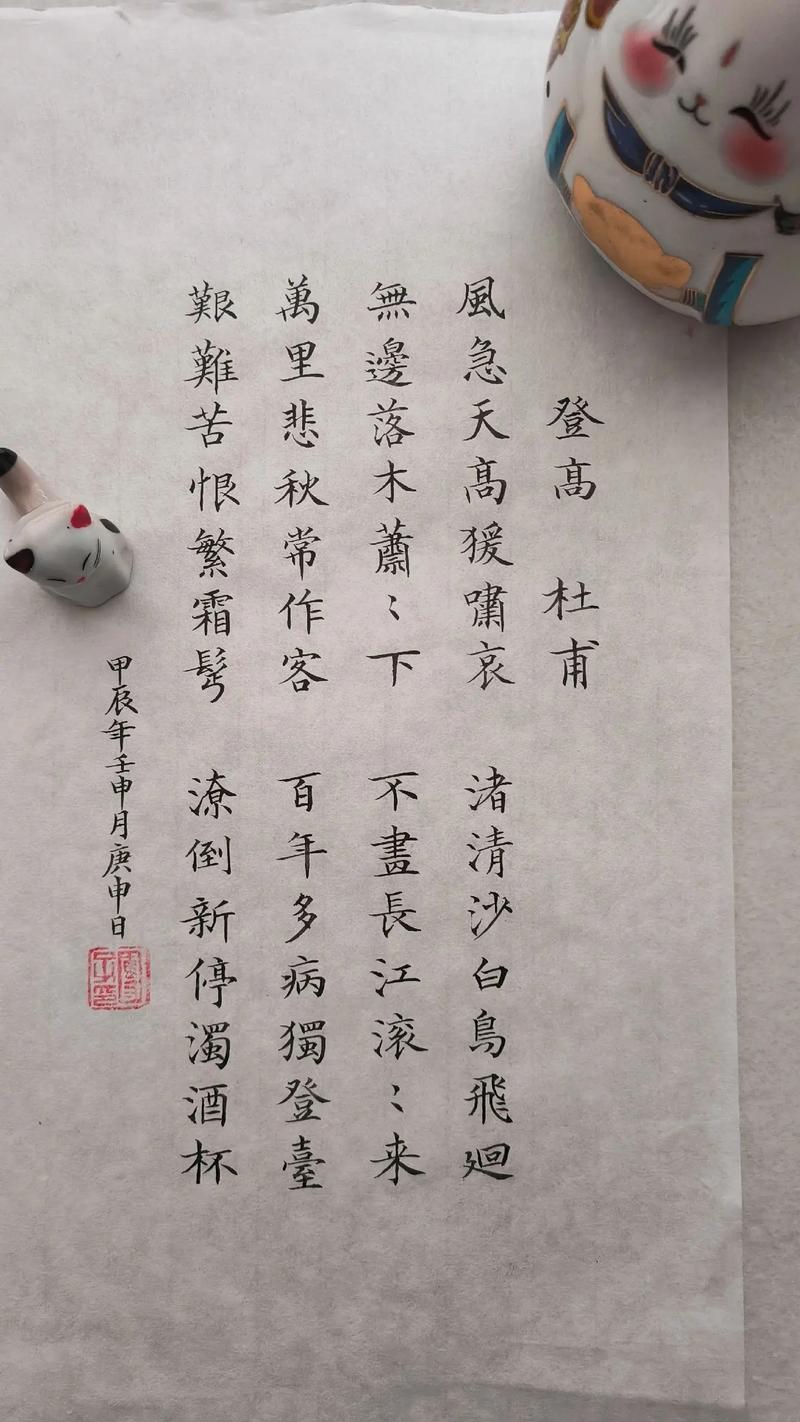 登高 杜甫
風急天高猨嘯哀 渚清沙白鳥飛廻
無邊落木蕭〻下 不盡長江滚〻来
萬里悲秋常作客 百年多病獨登臺
艱難苦恨繁霜髩 潦倒新停濁酒杯
甲辰年壬申月庚申日